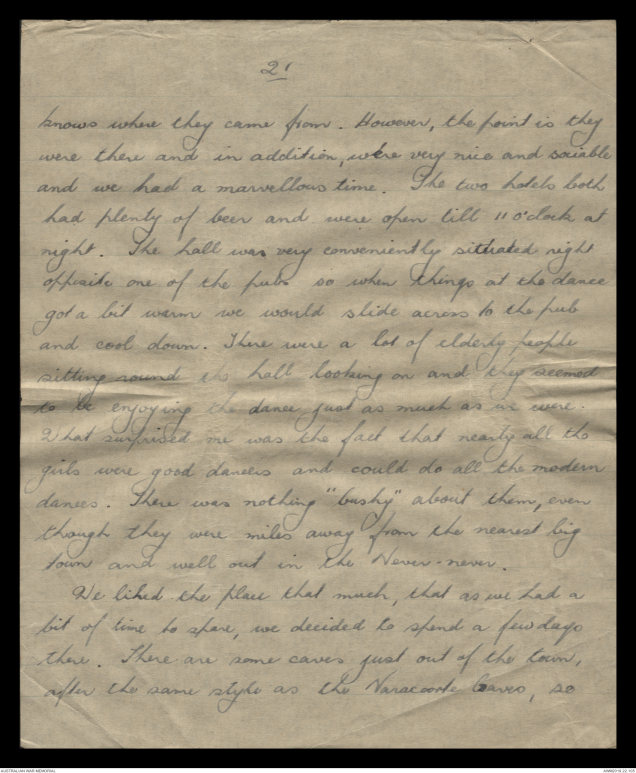 21
knows where they came from. However, the point is they
were there and in addition, were very nice and sociable
and we had a marvellous time. The two hotels both
had plenty of beer and were open till 11 o'clock at
night. The hall was very conveniently situated right
opposite one of the pubs so when things at the dance
got a bit warm we would slide across to the pub
and cool down. There were a lot of elderly people
sitting round the hall looking on and they seemed
to be enjoying the dance just as much as we were.
What surprised me was the fact that nearly all the
girls were good dancers and could do all the modern
dances. There was nothing "bushy" about them, even
though they were miles away from the nearest big
town and well out in the Never-never.
We liked the place that much, that as we had a
bit of time to spare, we decided to spend a few days
there. There are some caves just out of the town,
after the same style as the Naracoorte Caves, so
AUSTRALIAN WAR MEMORIAL